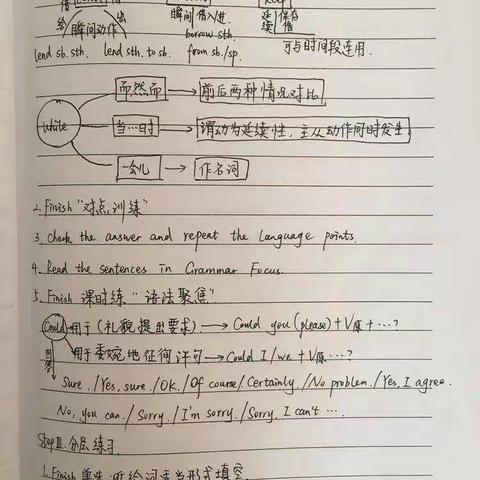 借 出 瞬间 借入/进 延续 保存 借
给 瞬间动作 borrow sth.
lend sb. sth. lend sth. to sb. from sb./sp. 可与时间段连用.
而然而 → 前后两种情况对比
while 当…时 → 谓动为延续性,主从动作同时发生
一会儿 → 作名词
2. Finish "对点训练"
3. Check the answer and repeat the language points.
4. Read the sentences in Grammar Focus.
5. Finish 课时练 "语法聚焦".
Could 用于(礼貌提出要求) → Could you (please) + V原 + …?
用于委婉地征询许可 → Could I/we + V原…?
回答
Sure. / Yes, sure. / OK. / Of course / Certainly. / No problem. / Yes, I agree.
No, you can. / Sorry. / I'm sorry. / Sorry, I can't ….
Step Ⅲ. 分层练习.
1. Finish 单生 所给词适当形式填空.